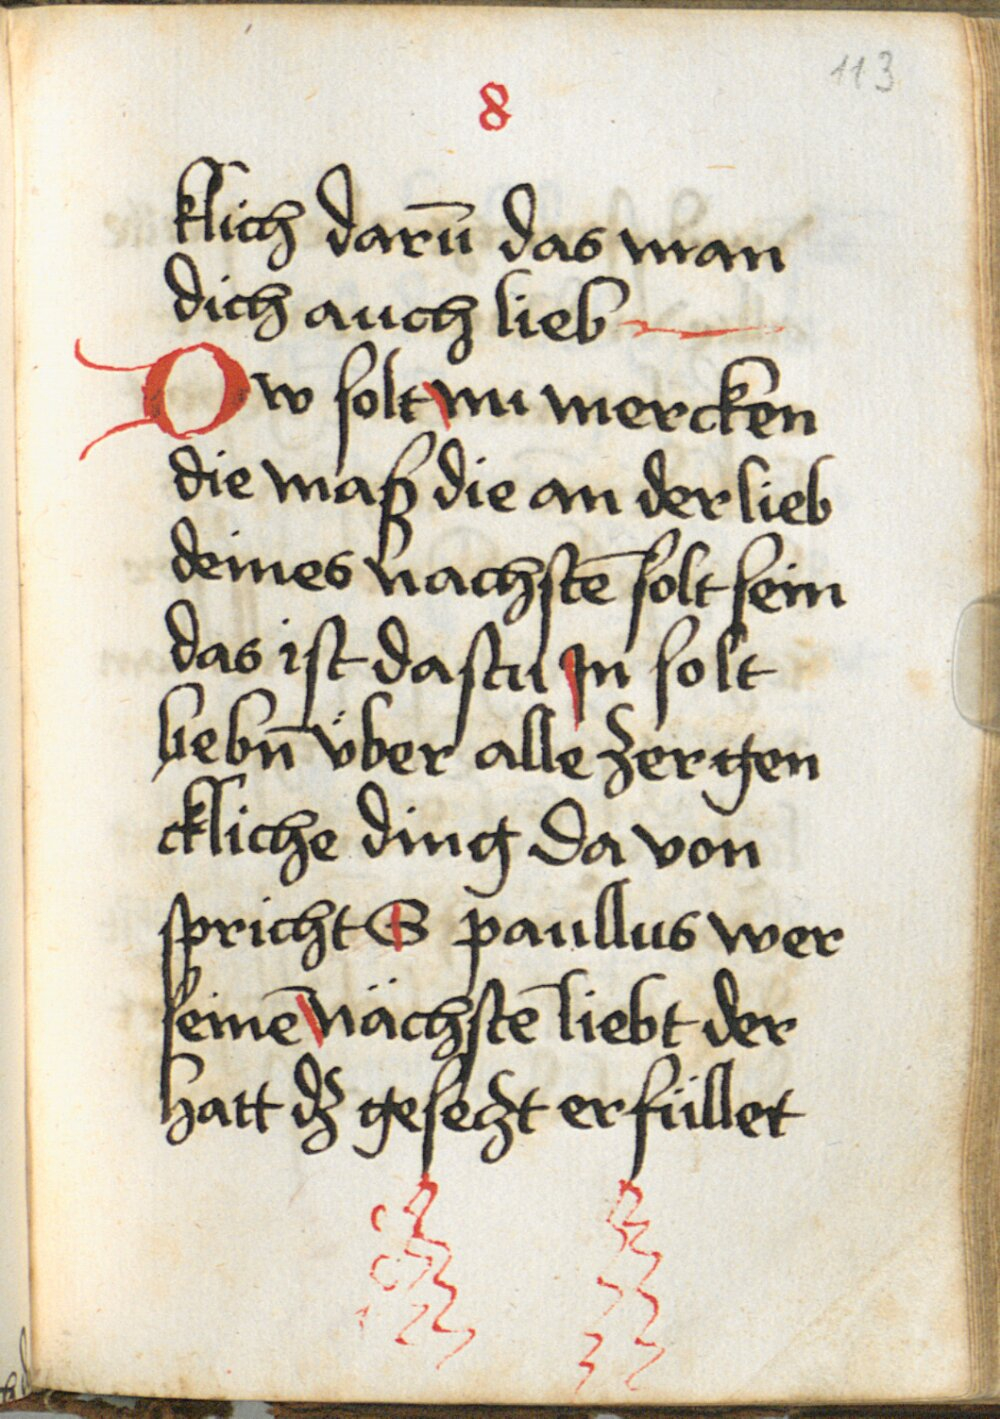 113
8
klich darū das man
dich auch lieb
Dw solt nu mercken
die maß die an der lieb
deines nachstē solt sein
das ist dastu in solt
liebn̄ über alle zergen
ckliche ding Da von
spricht S paullus wer
seinē nächstē liebt der
hatt dz gesetzt erfüllet